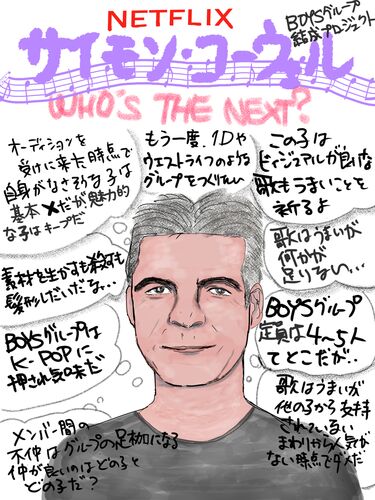 NETFLIX
BOYSグループ
結成プロジェクト
サイモン・コーウェル
WHO'S THE NEXT?
オーディションを
受けに来た時点で
自身がなさそうな子は
基本✕だが魅力的
な子はキープだ
もう一度、1Dや
ウエストライフのような
グループをつくりたい
この子は…
ビィジュアルが良いな
歌もうまいことを
祈るよ
歌はうまいが
何かが
足りない…
素材を生かすも殺すも
髪形しだいだな…
BOYSグループ
定員は4~5人
てとこだが…
BOYSグループは
K-POPに
押され気味だ
歌はうまいが
他の子から支持
されているい
まわりから人気が
ない時点でダメだ
メンバー間の
不仲はグループの足枷になる
仲が良いのはどの子と
どの子だ?